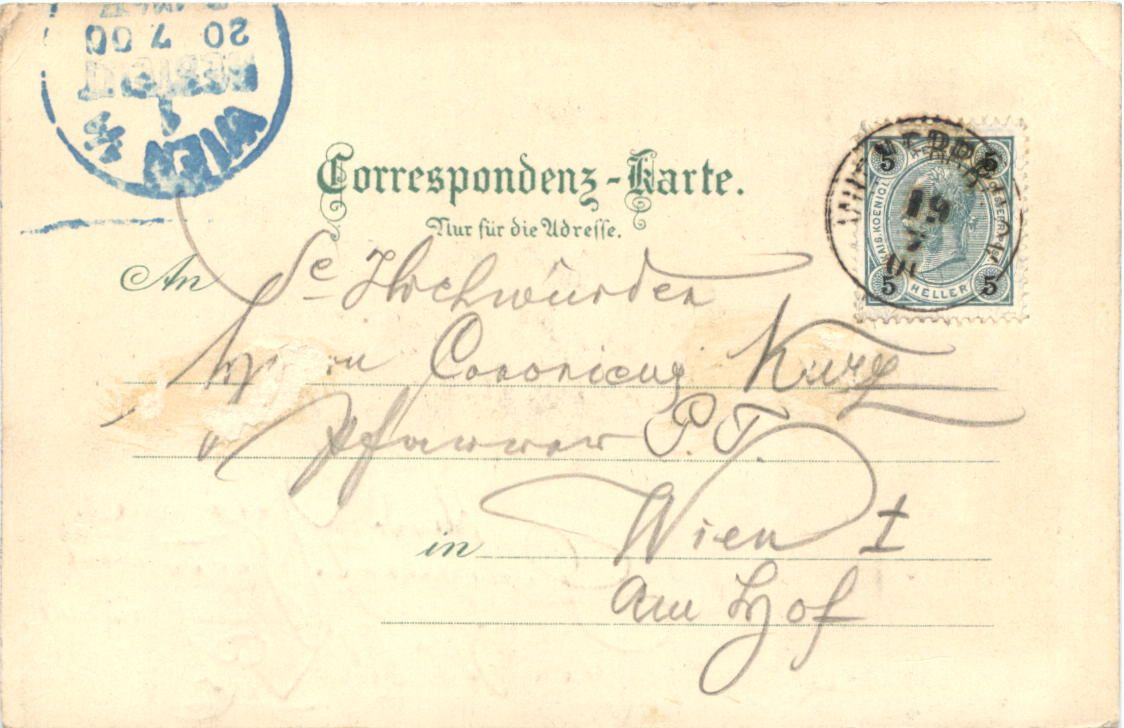 WIEN 1/1
1
BESTELLT
20 7 00
Correspondenz-Karte.
Nur für die Adresse.
5 5
HELLER
5 5
19
An Se Hochwürden
Herrn Canonicus Kurz
Pfarrer P. T.
in Wien I
Am Hof